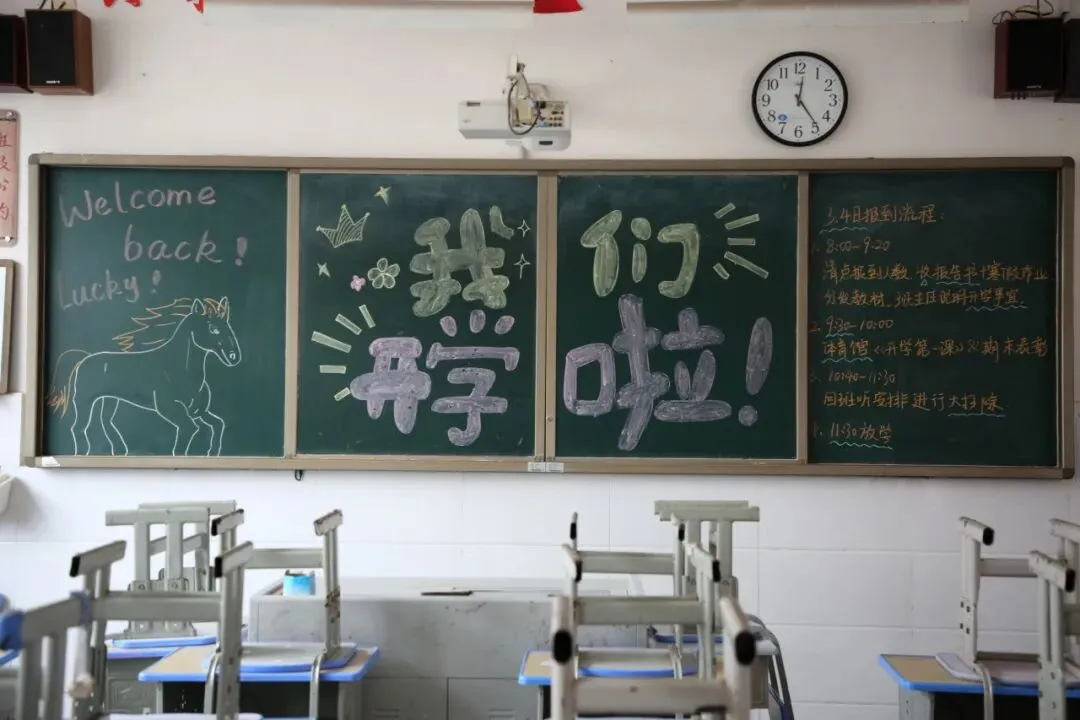 Welcome
back!
Lucky!
我们
开学啦!
3.4日报到流程:
1. 8:00-9:20
清点报到人数,收报告书+寒假作业
分发教材,班主任说明开学事宜
2. 9:30-10:00
体育馆《开学第一课》&期末表彰
3. 10:40-11:30
回班听安排进行大扫除
4. 11:30放学
12
1
2
3
4
5
6
7
8
9
10
11